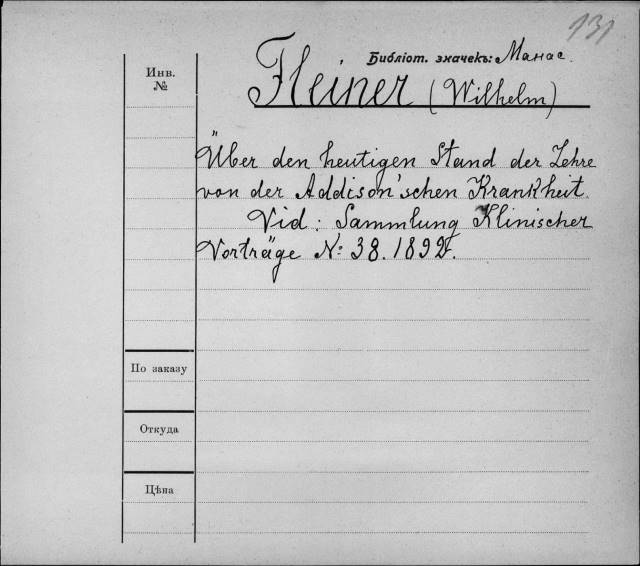 131
Библіот. значекъ: Манас.
Инв.
№
Fleiner (Wilhelm)
Über den heutigen Stand der Lehre
von der Addison'schen Krankheit.
Vid: Sammlung Klinischer
Vorträge N: 38. 1892.
По заказу
Откуда
Цѣна